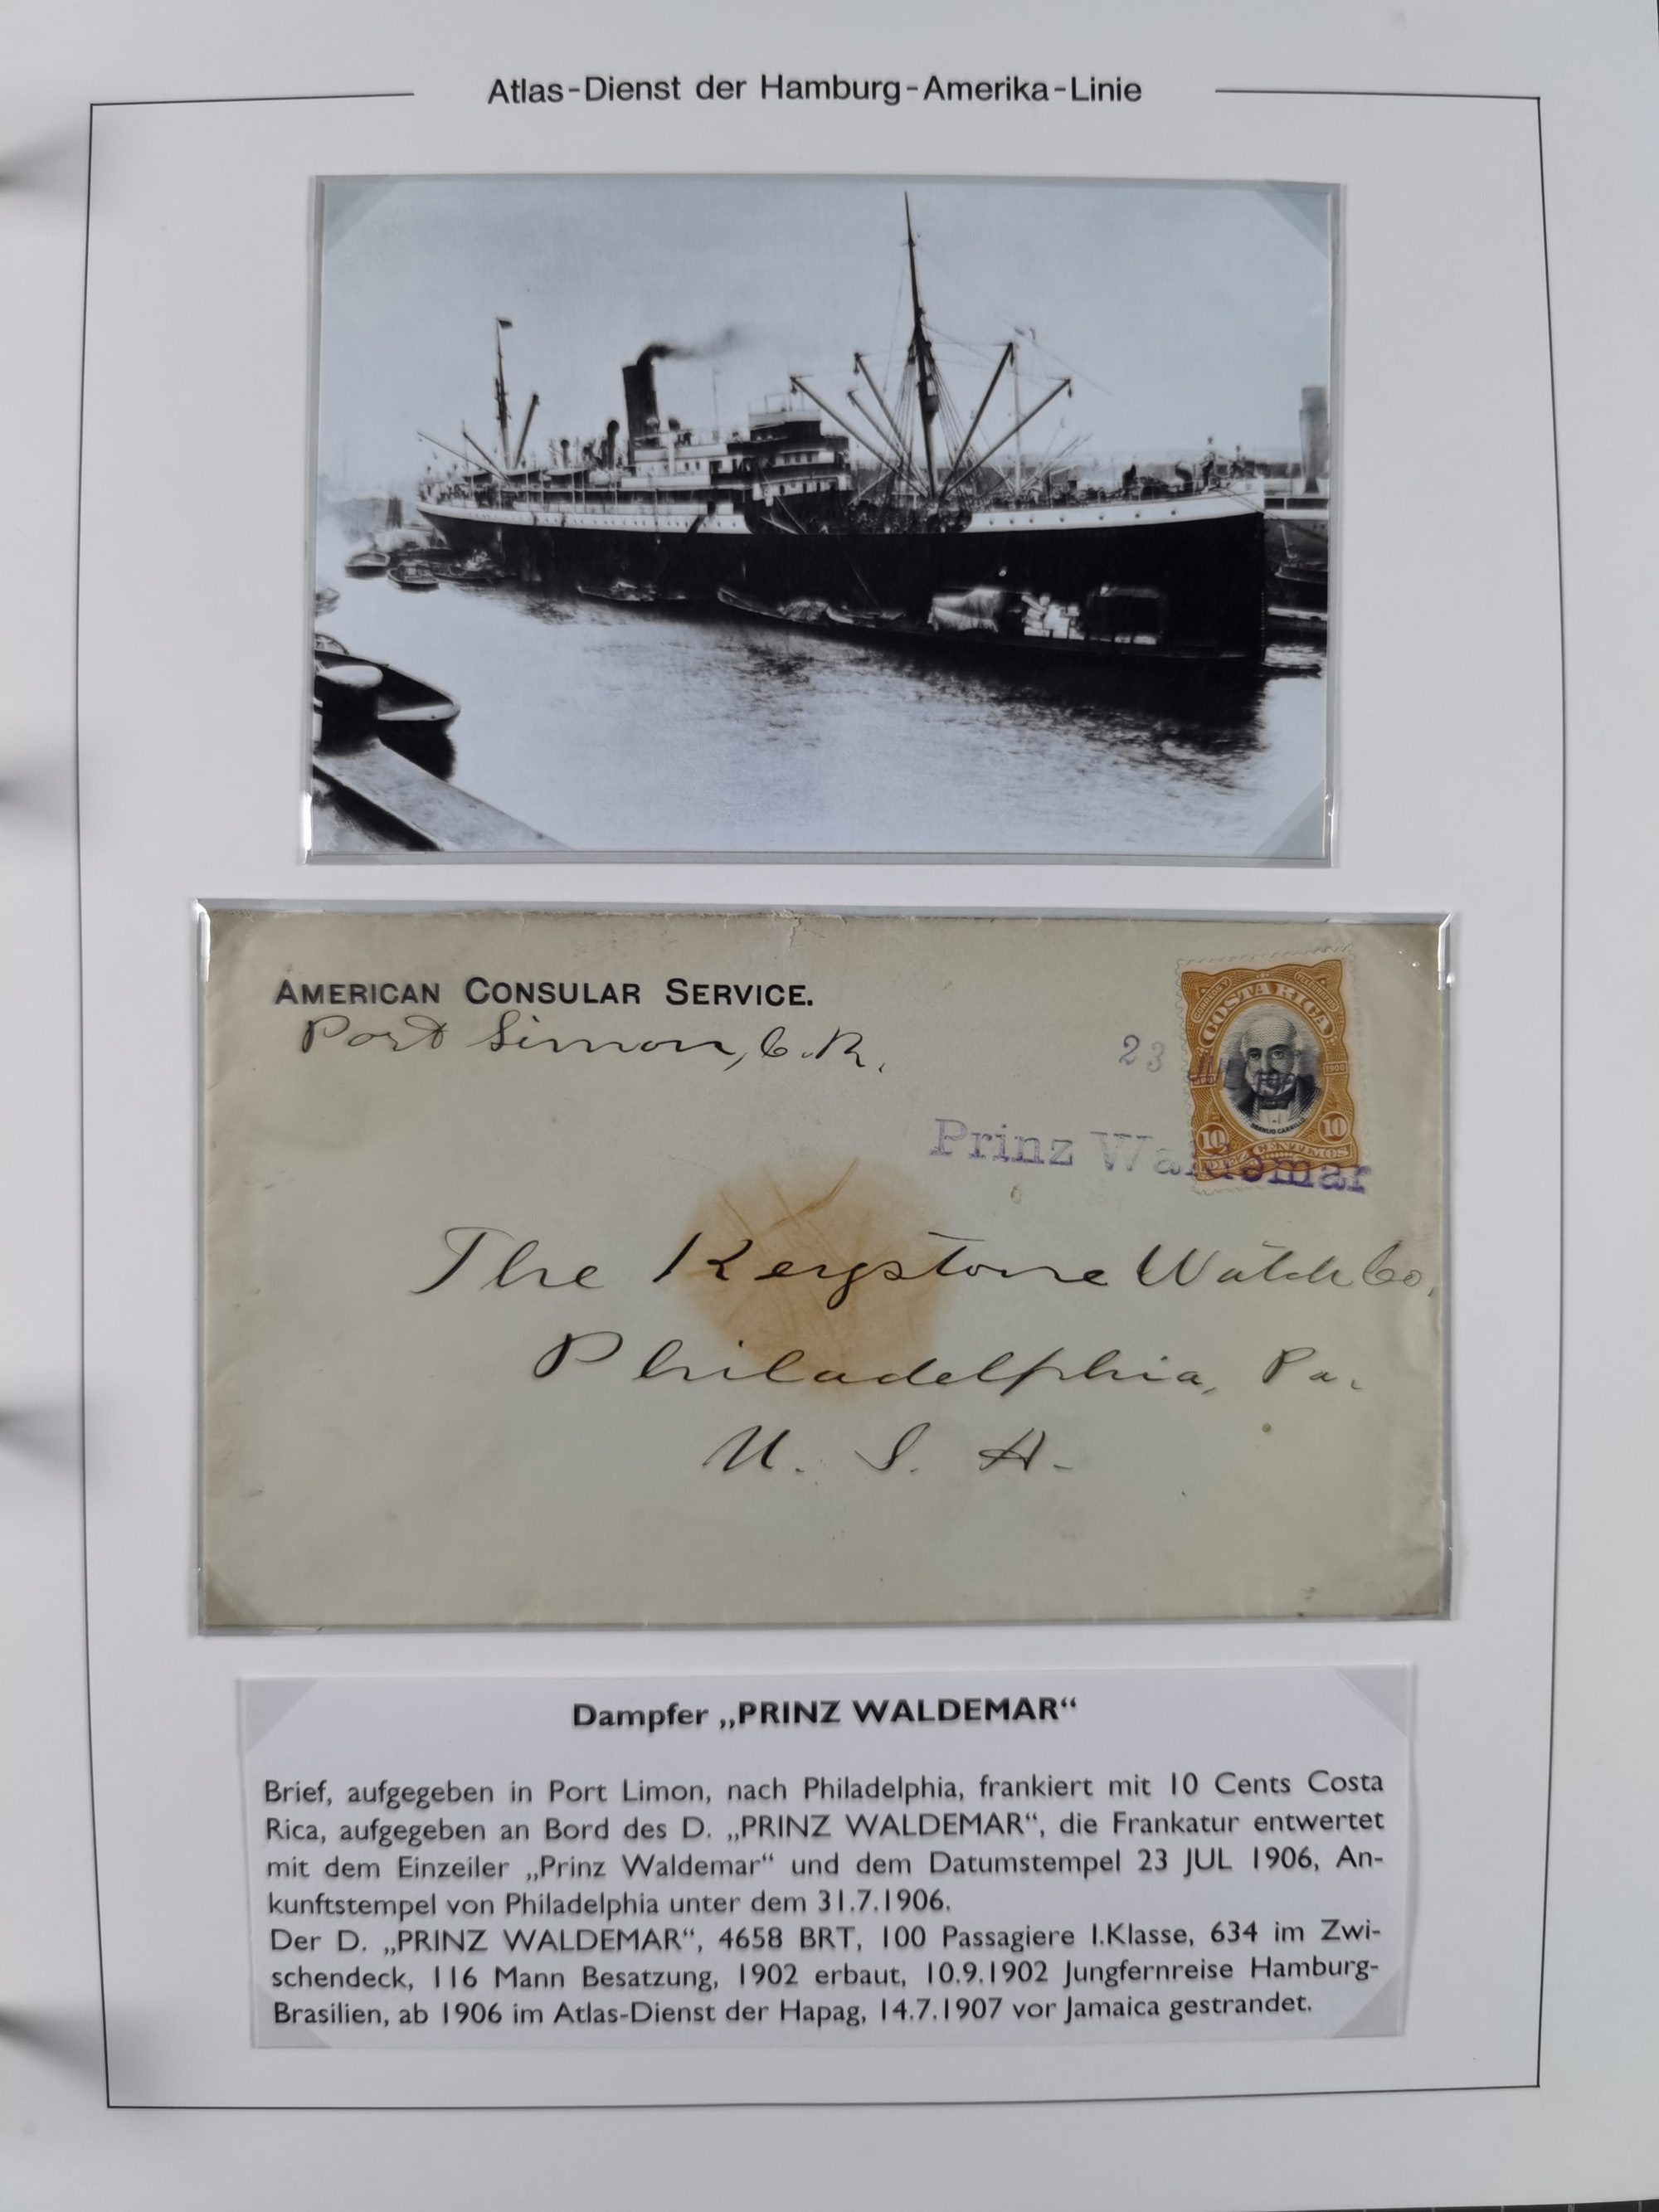 Atlas-Dienst der Hamburg-Amerika-Linie
AMERICAN CONSULAR SERVICE.
Port Limon, C.R.
23
COSTA RICA
1900
BRAULIO CARRILLO
10 10
DIEZ CENTIMOS
Prinz Waldemar
The Keystone Watch Co.
Philadelphia, Pa.
U. S. A.
Dampfer „PRINZ WALDEMAR“
Brief, aufgegeben in Port Limon, nach Philadelphia, frankiert mit 10 Cents Costa
Rica, aufgegeben an Bord des D. „PRINZ WALDEMAR“, die Frankatur entwertet
mit dem Einzeiler „Prinz Waldemar“ und dem Datumstempel 23 JUL 1906, An-
kunftstempel von Philadelphia unter dem 31.7.1906.
Der D. „PRINZ WALDEMAR“, 4658 BRT, 100 Passagiere I.Klasse, 634 im Zwi-
schendeck, 116 Mann Besatzung, 1902 erbaut, 10.9.1902 Jungfernreise Hamburg-
Brasilien, ab 1906 im Atlas-Dienst der Hapag, 14.7.1907 vor Jamaica gestrandet.